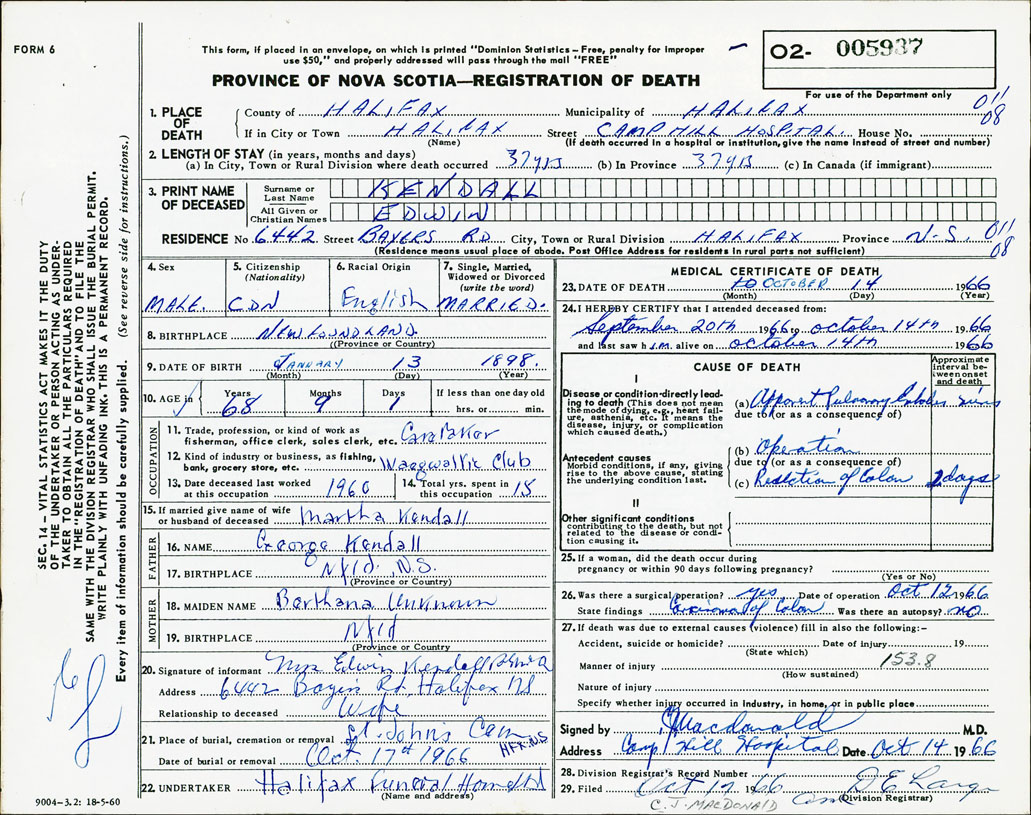 FORM 6
This form, if placed in an envelope, on which is printed "Dominion Statistics – Free, penalty for improper
use $50," and properly addressed will pass through the mail "FREE"
O2- 005937
PROVINCE OF NOVA SCOTIA—REGISTRATION OF DEATH
For use of the Department only
011
08
1. PLACE OF DEATH
County of HALIFAX Municipality of HALIFAX
If in City or Town HALIFAX Street CAMP HILL HOSPITAL. House No.
(Name) (If death occurred in a hospital or institution, give the name instead of street and number)
2. LENGTH OF STAY (in years, months and days)
(a) In City, Town or Rural Division where death occurred 37 yrs (b) In Province 37 yrs (c) In Canada (if immigrant)
3. PRINT NAME OF DECEASED
Surname or Last Name KENDALL
All Given or Christian Names EDWIN
RESIDENCE No. 6442 Street BAYERS RD City, Town or Rural Division HALIFAX Province N.S. 011
08
(Residence means usual place of abode. Post Office Address for residents in rural parts not sufficient)
4. Sex
MALE.
5. Citizenship
(Nationality)
CDN
6. Racial Origin
English
7. Single, Married,
Widowed or Divorced
(write the word)
MARRIED.
8. BIRTHPLACE NEWFOUNDLAND.
(Province or Country)
9. DATE OF BIRTH JANUARY 13 1898.
(Month) (Day) (Year)
10. AGE in Years Months Days If less than one day old
68 9 1 hrs. or min.
OCCUPATION
11. Trade, profession, or kind of work as
fisherman, office clerk, sales clerk, etc.
12. Kind of industry or business, as fishing,
bank, grocery store, etc. Waegwaltic Club
13. Date deceased last worked
at this occupation 1960
14. Total yrs. spent in
this occupation 15
15. If married give name of wife
or husband of deceased Martha Kendall
FATHER
16. NAME George Kendall
17. BIRTHPLACE Nfld. N.S.
(Province or Country)
MOTHER
18. MAIDEN NAME Berthana Unknown
19. BIRTHPLACE Nfld
(Province or Country)
20. Signature of informant Mrs Edwin Kendall
Address 6442 Rd. Halifax NS
Relationship to deceased Wife
21. Place of burial, cremation or removal St. Johns Cem
HFX. N.S
Date of burial or removal Oct. 17th 1966
22. UNDERTAKER Halifax Funeral Home Ltd
(Name and address)
MEDICAL CERTIFICATE OF DEATH
23. DATE OF DEATH OCTOBER 14 1966
(Month) (Day) (Year)
24. I HEREBY CERTIFY that I attended deceased from:
September 20th 1966 to october 14th 1966
and last saw him. alive on october 14th 1966
CAUSE OF DEATH
Approximate
interval be-
tween onset
and death
I
Disease or condition directly lead-
ing to death (This does not mean
the mode of dying, e.g., heart fail-
ure, asthenia, etc. It means the
disease, injury, or complication
which caused death.)
(a) Apparent Pulmonary Embolus mins
due to (or as a consequence of)
Antecedent causes
Morbid conditions, if any, giving
rise to the above cause, stating
the underlying condition last.
(b) Operation
due to (or as a consequence of)
(c) Resection of Colon 2 days
II
Other significant conditions
contributing to the death, but not
related to the disease or condi-
tion causing it.
25. If a woman, did the death occur during
pregnancy or within 90 days following pregnancy?
(Yes or No)
26. Was there a surgical operation? yes Date of operation Oct 12 1966
State findings Carcinoma of Colon Was there an autopsy? no
27. If death was due to external causes (violence) fill in also the following:–
Accident, suicide or homicide? Date of injury 19
(State which)
153.8
Manner of injury
(How sustained)
Nature of injury
Specify whether injury occurred in Industry, in home, or in public place
Signed by Macdonald M.D.
Address Camp Hill Hospital Date Oct. 14 1966
28. Division Registrar's Record Number
29. Filed Oct 17 1966
(Division Registrar)
C. J. MACDONALD
SEC. 14 – VITAL STATISTICS ACT MAKES IT THE DUTY
OF THE UNDERTAKER OR PERSON ACTING AS UNDER-
TAKER TO OBTAIN ALL THE PARTICULARS REQUIRED
IN THE "REGISTRATION OF DEATH" AND TO FILE THE
SAME WITH THE DIVISION REGISTRAR WHO SHALL ISSUE THE BURIAL PERMIT.
WRITE PLAINLY WITH UNFADING INK. THIS IS A PERMANENT RECORD.
Every item of information should be carefully supplied. (See reverse side for instructions.)
9004-3.2: 18-5-60